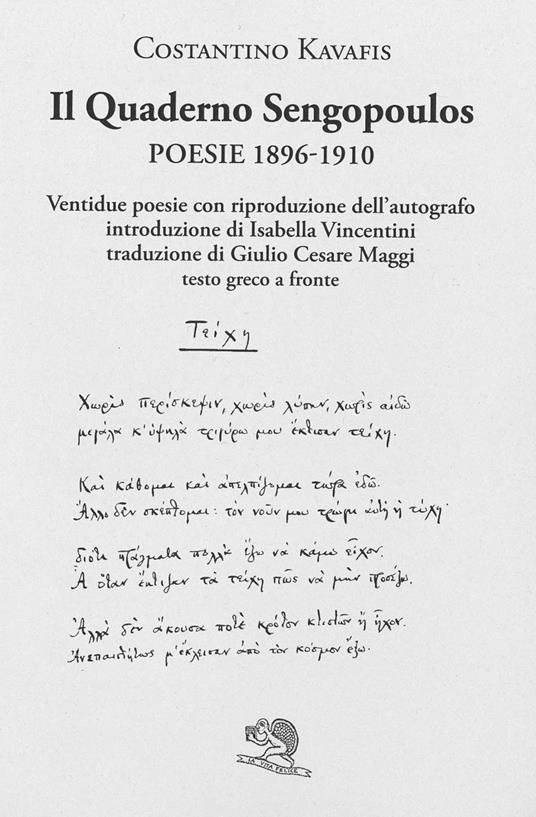 COSTANTINO KAVAFIS
Il Quaderno Sengopoulos
POESIE 1896-1910
Ventidue poesie con riproduzione dell’autografo
introduzione di Isabella Vincentini
traduzione di Giulio Cesare Maggi
testo greco a fronte
Τείχη
Χωρὶς περίσκεψιν, χωρὶς λύπην, χωρὶς αἰδῶ
μεγάλα κ’ ὑψηλὰ τριγύρω μου ἔκτισαν τείχη.
Καὶ κάθομαι καὶ ἀπελπίζομαι τώρα ἐδῶ.
Ἄλλο δὲν σκέπτομαι: τὸν νοῦν μου τρώγει αὐτὴ ἡ τύχη·
διότι πράγματα πολλὰ ἔξω νὰ κάμω εἶχον.
Ἆ ὅταν ἔκτιζαν τὰ τείχη πῶς νὰ μὴν προσέξω.
Ἀλλὰ δὲν ἄκουσα ποτὲ κρότον κτιστῶν ἢ ἦχον.
Ἀνεπαισθήτως μ’ ἔκλεισαν ἀπὸ τὸν κόσμον ἔξω.
LA VITA FELICE